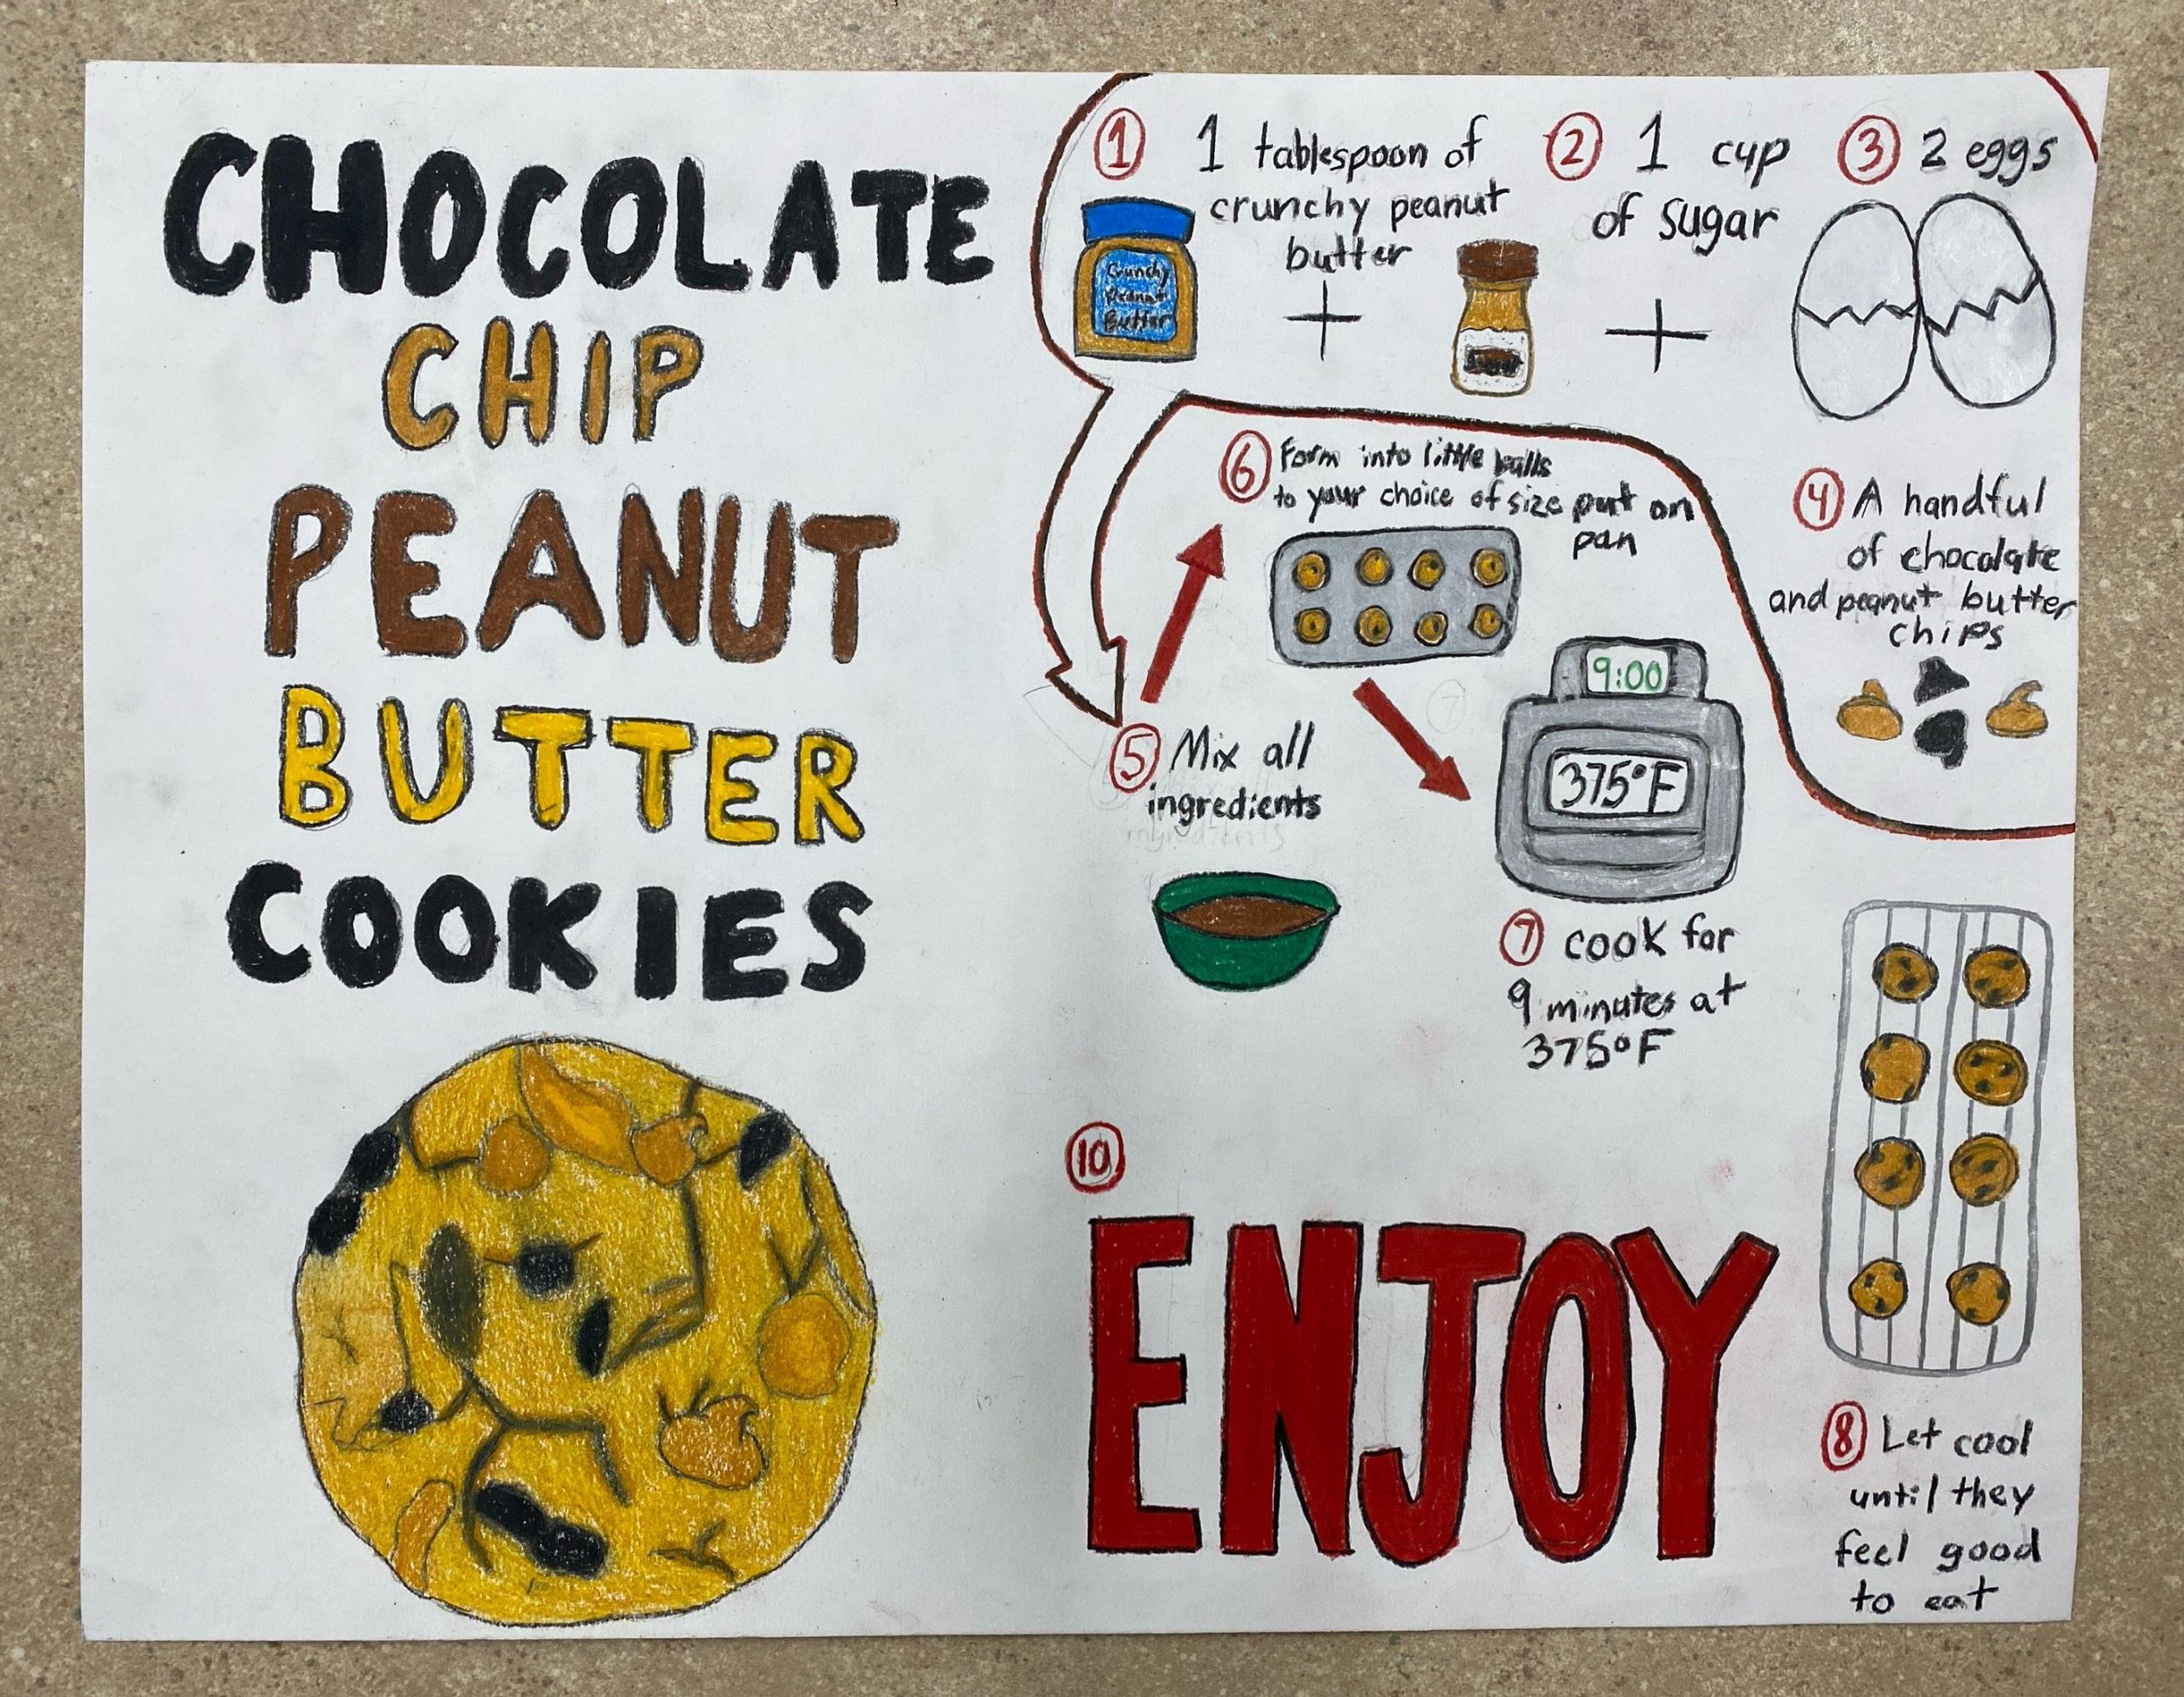 CHOCOLATE
CHIP
PEANUT
BUTTER
COOKIES
① 1 tablespoon of
crunchy peanut
butter
Crunchy
Peanut
Butter
+
② 1 cup
of sugar
+
③ 2 eggs
④ A handful
of chocolate
and peanut butter
chips
⑤ Mix all
ingredients
ingredients
⑥ Form into little balls
to your choice of size put on
pan
7
9:00
375°F
⑦ cook for
9 minutes at
375°F
⑧ Let cool
until they
feel good
to eat
⑩
ENJOY